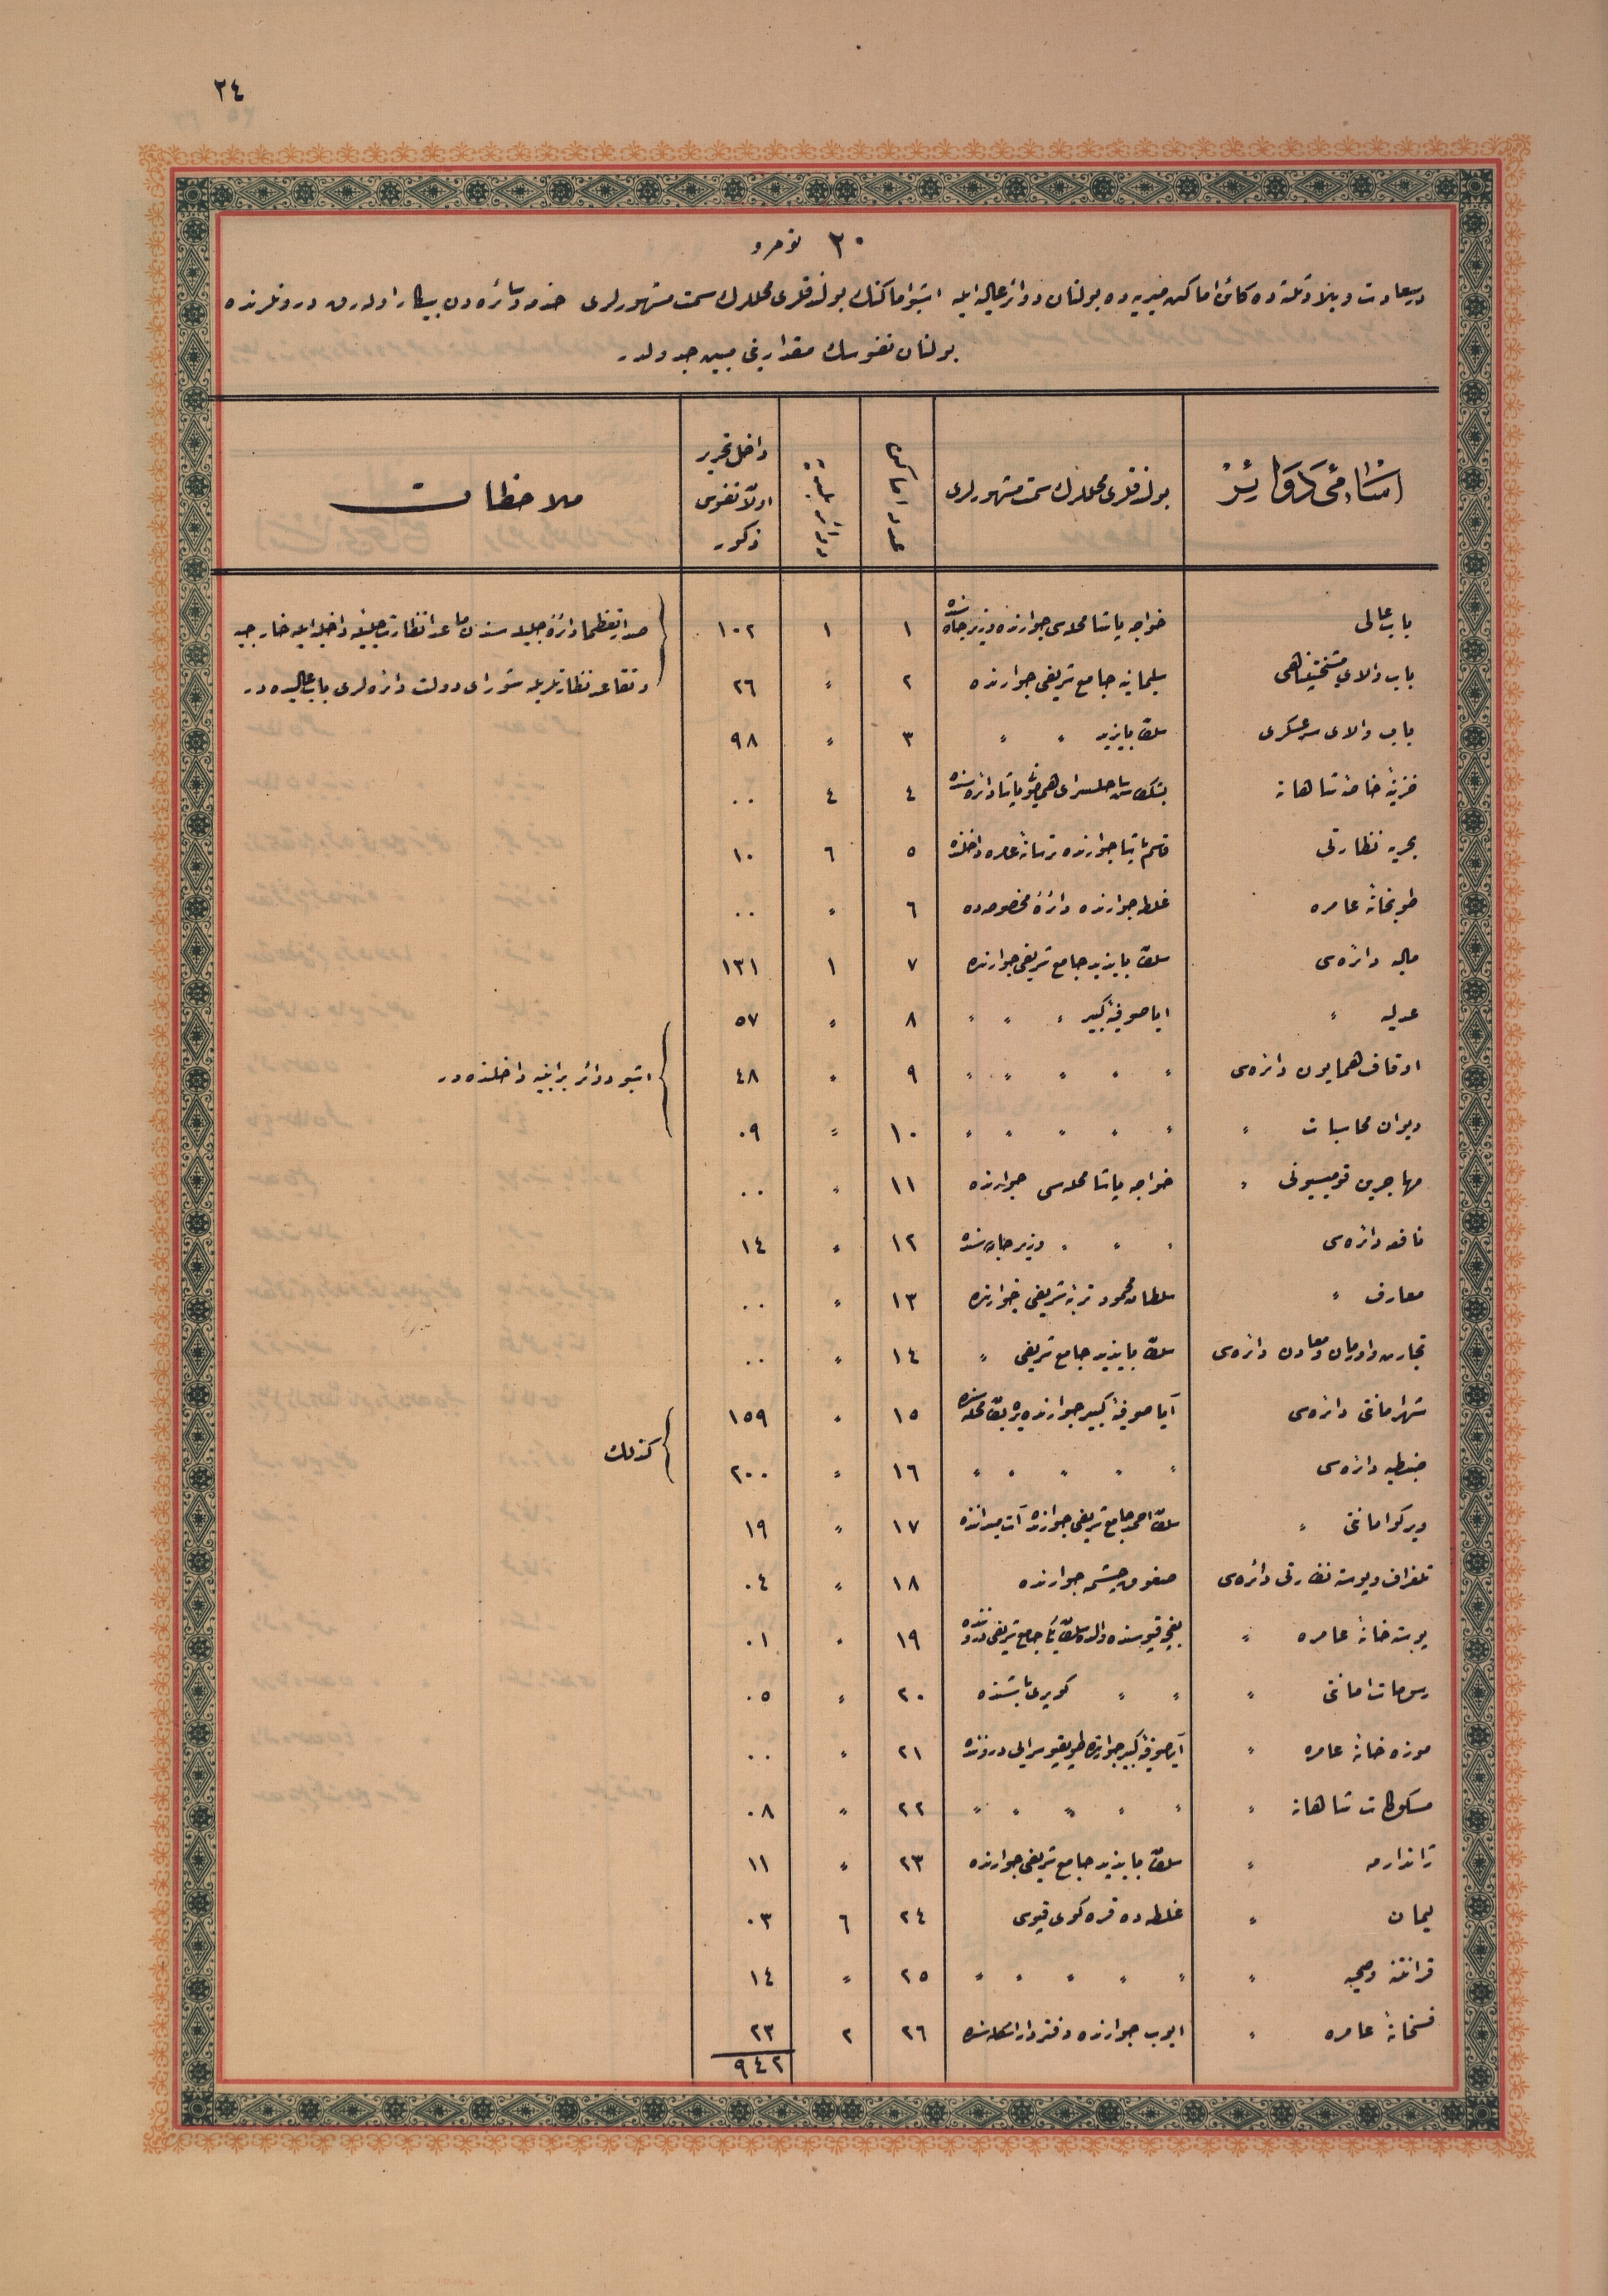 ٢٤
٢٠ نومرو
درسعادت وبلاد ثلثه ده كائن اماكن ميريه ده بولنان دوائر عاليه ايله اشبو اماكنك بولندقلرى محللرك سمت مشهورلرى خدمه وسائره دن بيكار اوله رق درونلرنده
بولنان نفوسك مقدارينى مبين جدولدر
اسامئ دوائر بولندقلرى محللرك سمت مشهورلرى عدد اماكن دائره بلديه داخل تحرير اولان نفوس ذكور ملاحظات
باب عالى خواجه پاشا محله سى جوارنده وزير جاده سنده ١ ١ ١٠٢ صدارتعظما دائرۀ جليله سندن ماعدا نظارت جليله داخليه ايله خارجيه
باب والاى مشيختپناهى سليمانيه جامع شريفى جوارنده ٢ " ٢٦ وتقاعد نظارتلريله شوراى دولت دائره لرى باب عاليده در
باب والاى سرعسكرى سلطان بايزيد " " ٣ " ٩٨
خزينۀ خاصۀ شاهانه بشكطاش ساحلسراى همايونى پاشا دائره سنده ٤ ٤ ٠٠
بحريه نظارتى قاسم پاشا جوارنده ترسانۀ عامره داخلنده ٥ ٦ ١٠
طوبخانۀ عامره غلطه جوارنده دائرۀ مخصوصه ده ٦ " ٠٠
ماليه دائره سى سلطان بايزيد جامع شريفى جوارنده ٧ ١ ١٣١
عدليه " اياصوفيۀ كبير " " " ٨ " ٥٧
اوقاف همايون دائره سى " " " " " ٩ " ٤٨ اشبو دوائر بر ابنيه داخلنده در
ديوان محاسبات " " " " " " ١٠ " ٠٩
مهاجرين قوميسيونى " خواجه پاشا محله سى جوارنده ١١ " ٠٠
نافعه دائره سى " " " وزير جاده سنده ١٢ " ١٤
معارف " سلطان محمود تربۀ شريفى جوارنده ١٣ " ٠٠
تجارت واورمان ومعادن دائره سى سلطان بايزيد جامع شريفى " ١٤ " ٠٠
شهرامانتى دائره سى آياصوفيۀ كبير جوارنده يره بتان محله سنده ١٥ " ١٥٩ كذلك
ضبطيه دائره سى " " " " " ١٦ " ٢٠٠
ويركو امانتى " سلطان احمد جامع شريفى جوارنده آت ميداننده ١٧ " ١٩
تلغراف وپوسته نظارتى دائره سى صغوق چشمه جوارنده ١٨ " ٠٤
پوسته خانۀ عامره " بغچه قپوسنده والده سلطان جامع شريفى دروننده ١٩ " ٠١
رسومات امانتى " " " كوپرى باشنده ٢٠ " ٠٥
موزه خانۀ عامره " آياصوفيۀ كبير جوارنده طوپقپو سرايى دروننده ٢١ " ٠٠
مسكوكات شاهانه " " " " " " ٢٢ " ٠٨
ژاندارمه " سلطان بايزيد جامع شريفى جوارنده ٢٣ " ١١
ليمان " غلطه ده قره كوى قپوسى ٢٤ ٦ ٠٣
قرانتنه وصحيه " " " " " " ٢٥ " ١٤
فسخانۀ عامره " ايوب جوارنده دفتردار اسكله سنده ٢٦ ٢ ٢٣
٩٤٢